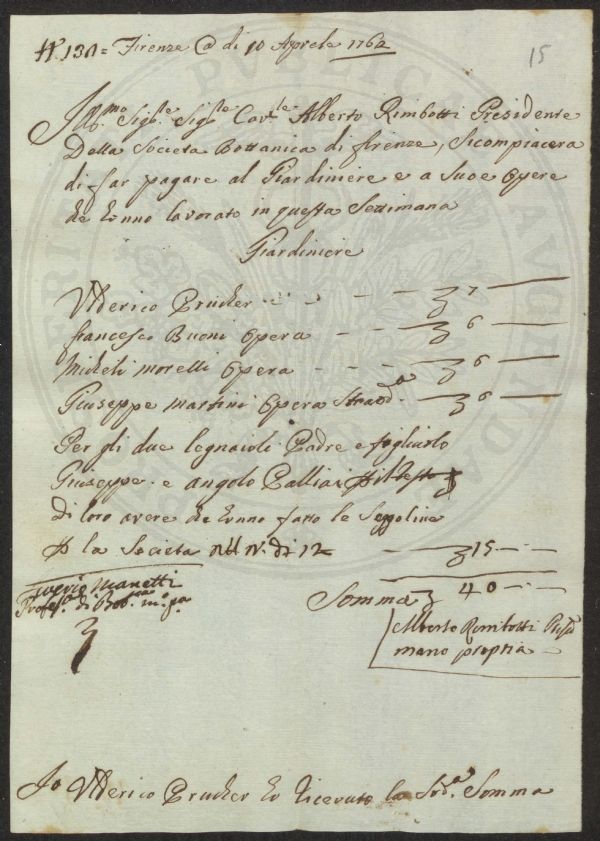 N° 130 = Firenze @ di 10 Aprele 1762
15
Ill.mo Sig.re Sig.re Cav.re Alberto Rimbotti Presidente
Della Societa Bottanica di firenze, Sicompiacera
di far pagare al Giardiniere e a Suoe Opere
che Enno lavorato in questa Settimana
Giardiniere
Ulderico Prucker 7
francesco Buoni Opera 6
Micheli morelli Opera 6
Giuseppe martini Opera Straord.a 6
Per gli due legnaioli Padre e figliuolo
Giuseppe e angolo
di loro avere che Enno fatto le Seggoline
P la Societa N. di 12 15
Saverio Manetti
Profes.e di Bot.
Somma 40
Alberto Rimbotti Presid.
mano propria
Io Ulderico Prucker Ho Ricevuto la Sud.a Somma